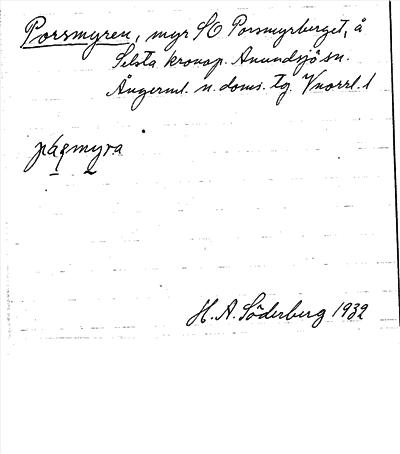 Porsmyren, myr SO Porsmyrberget, å
Selsta kronop. Anundsjö sn.
Ångerml. n. doms. tg. Vnorrl. l
H. A. Söderberg 1932